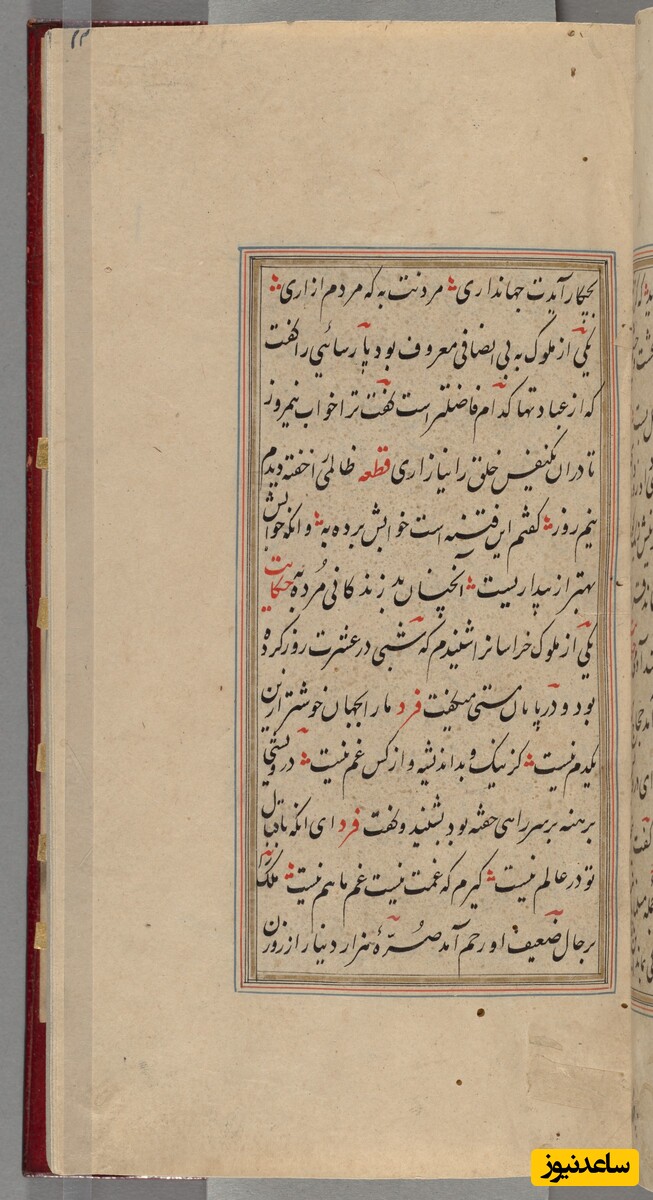 ۱۳
بچکار آیدت جهانداری مردنت به که مردم ازاری
یکی از ملوک به بی انصافی معروف بود پارسائیی را گفت
که از عبادتها کدام فاضلتر است گفت ترا خواب نیمروز
تا دران یکنفس خلق را نیازاری قطعه ظالمی را خفته دیدم
نیم روز گفتم این فتنه است خوابش برده به وانکه خوابش
بهتر از بیداریست آنچنان بد زندکانی مُرده به حکایت
یکی از ملوک خراسانرا شنیدم که شبی در عشرت روز کرده
بود و در پایان مستی میگفت فرد ما را بجهان خوشتر ازین
یکدم نیست کز نیک و بد اندیشه و از کس غم نیست درویشی
برهنه بر سر راهی خفته بود بشنید و گفت فرد ای انکه باقبال
تو در عالم نیست گیرم که غمت نیست غم ما هم نیست ملک را
بر حال ضعیف او رحم آمد صُرّهٔ هزار دینار از روزن
ساعدنیوز